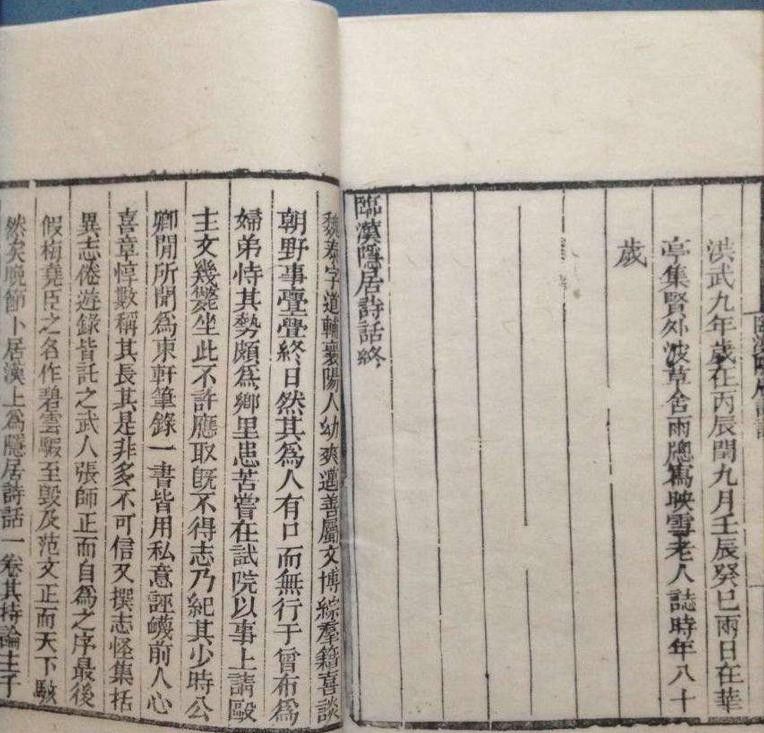 洪武九年歲在丙辰閏九月壬辰癸巳雨日在華
亭集賢外波草舍雨牕寫映雪老人誌時年八十
歲
臨漢隱居詩話終
魏泰字道輔襄陽人幼爽邁善屬文博綜羣籍喜談
朝野事亹亹終日然其為人有口而無行于曾布為
婦弟恃其勢頗為鄉里患苦嘗在試院以事上請毆
主文幾斃坐此不許應取旣不得志乃紀其少時公
卿閒所聞為東軒筆錄一書皆用私意誣衊前人心
喜章惇數稱其長其是非多不可信又撰志怪集括
異志倦遊錄皆託之武人張師正而自為之序最後
假梅堯臣之名作碧雲騢至毀及范文正而天下駭
然矣晚節卜居漢上為隱居詩話一卷其持論主于